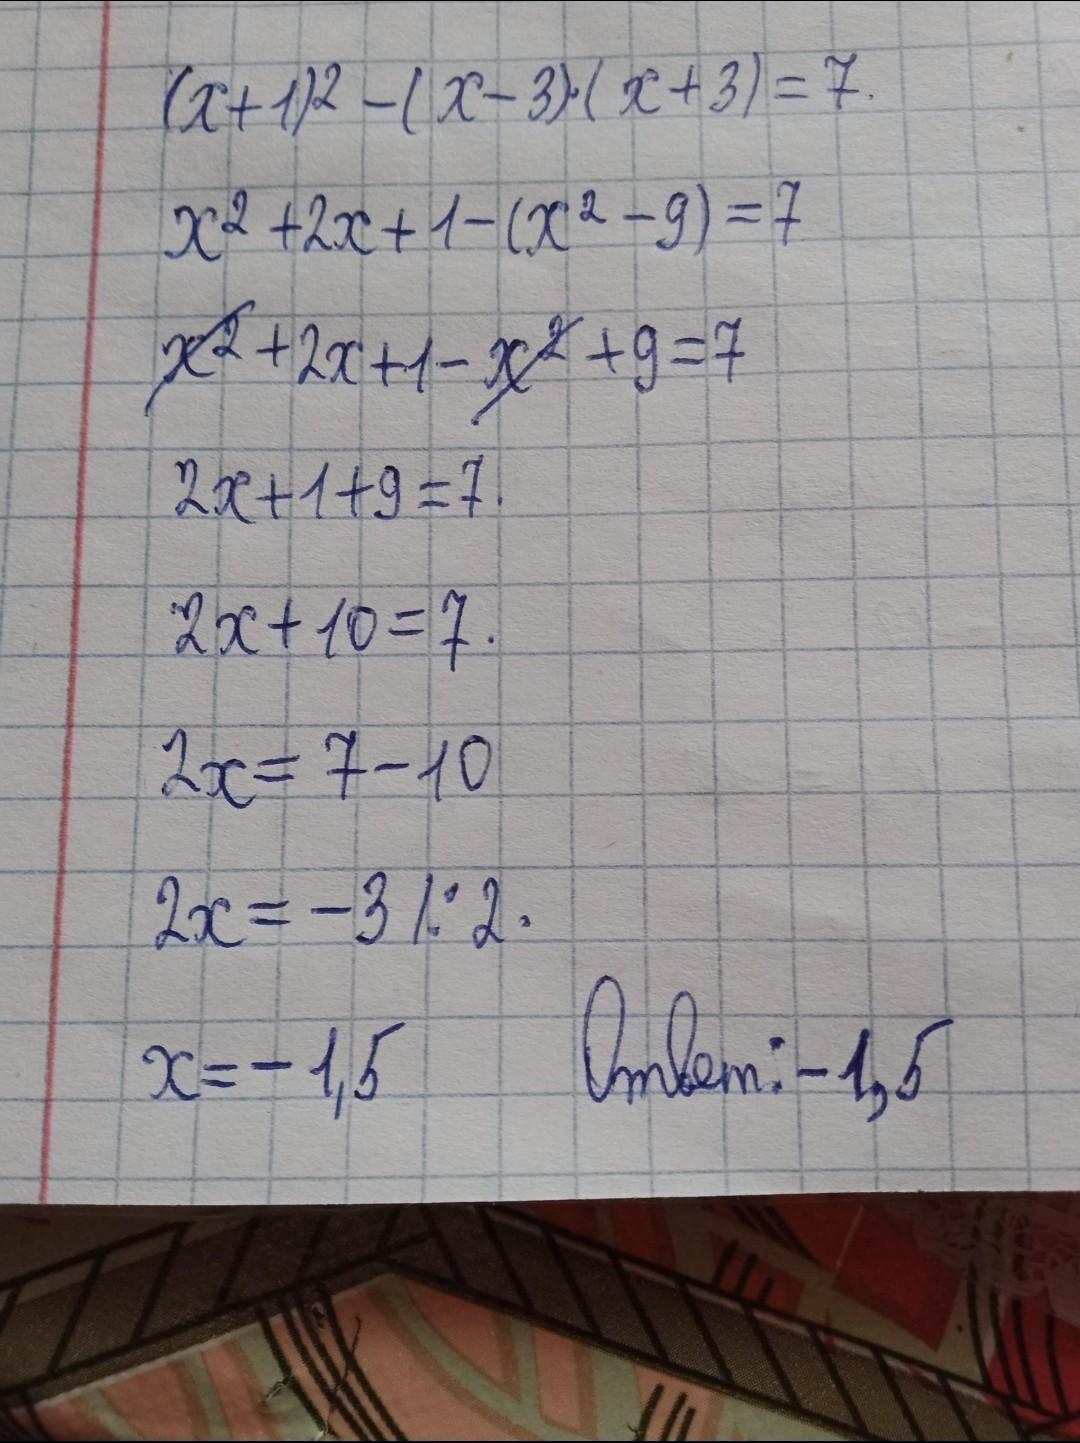 (x+1)² -(x-3)·(x+3)=7.
x²+2x+1-(x²-9)=7
x²+2x+1-x²+9=7
2x+1+9=7.
2x+10=7.
2x=7-10
2x=-3 |:2.
x=-1,5 Ответ:-1,5